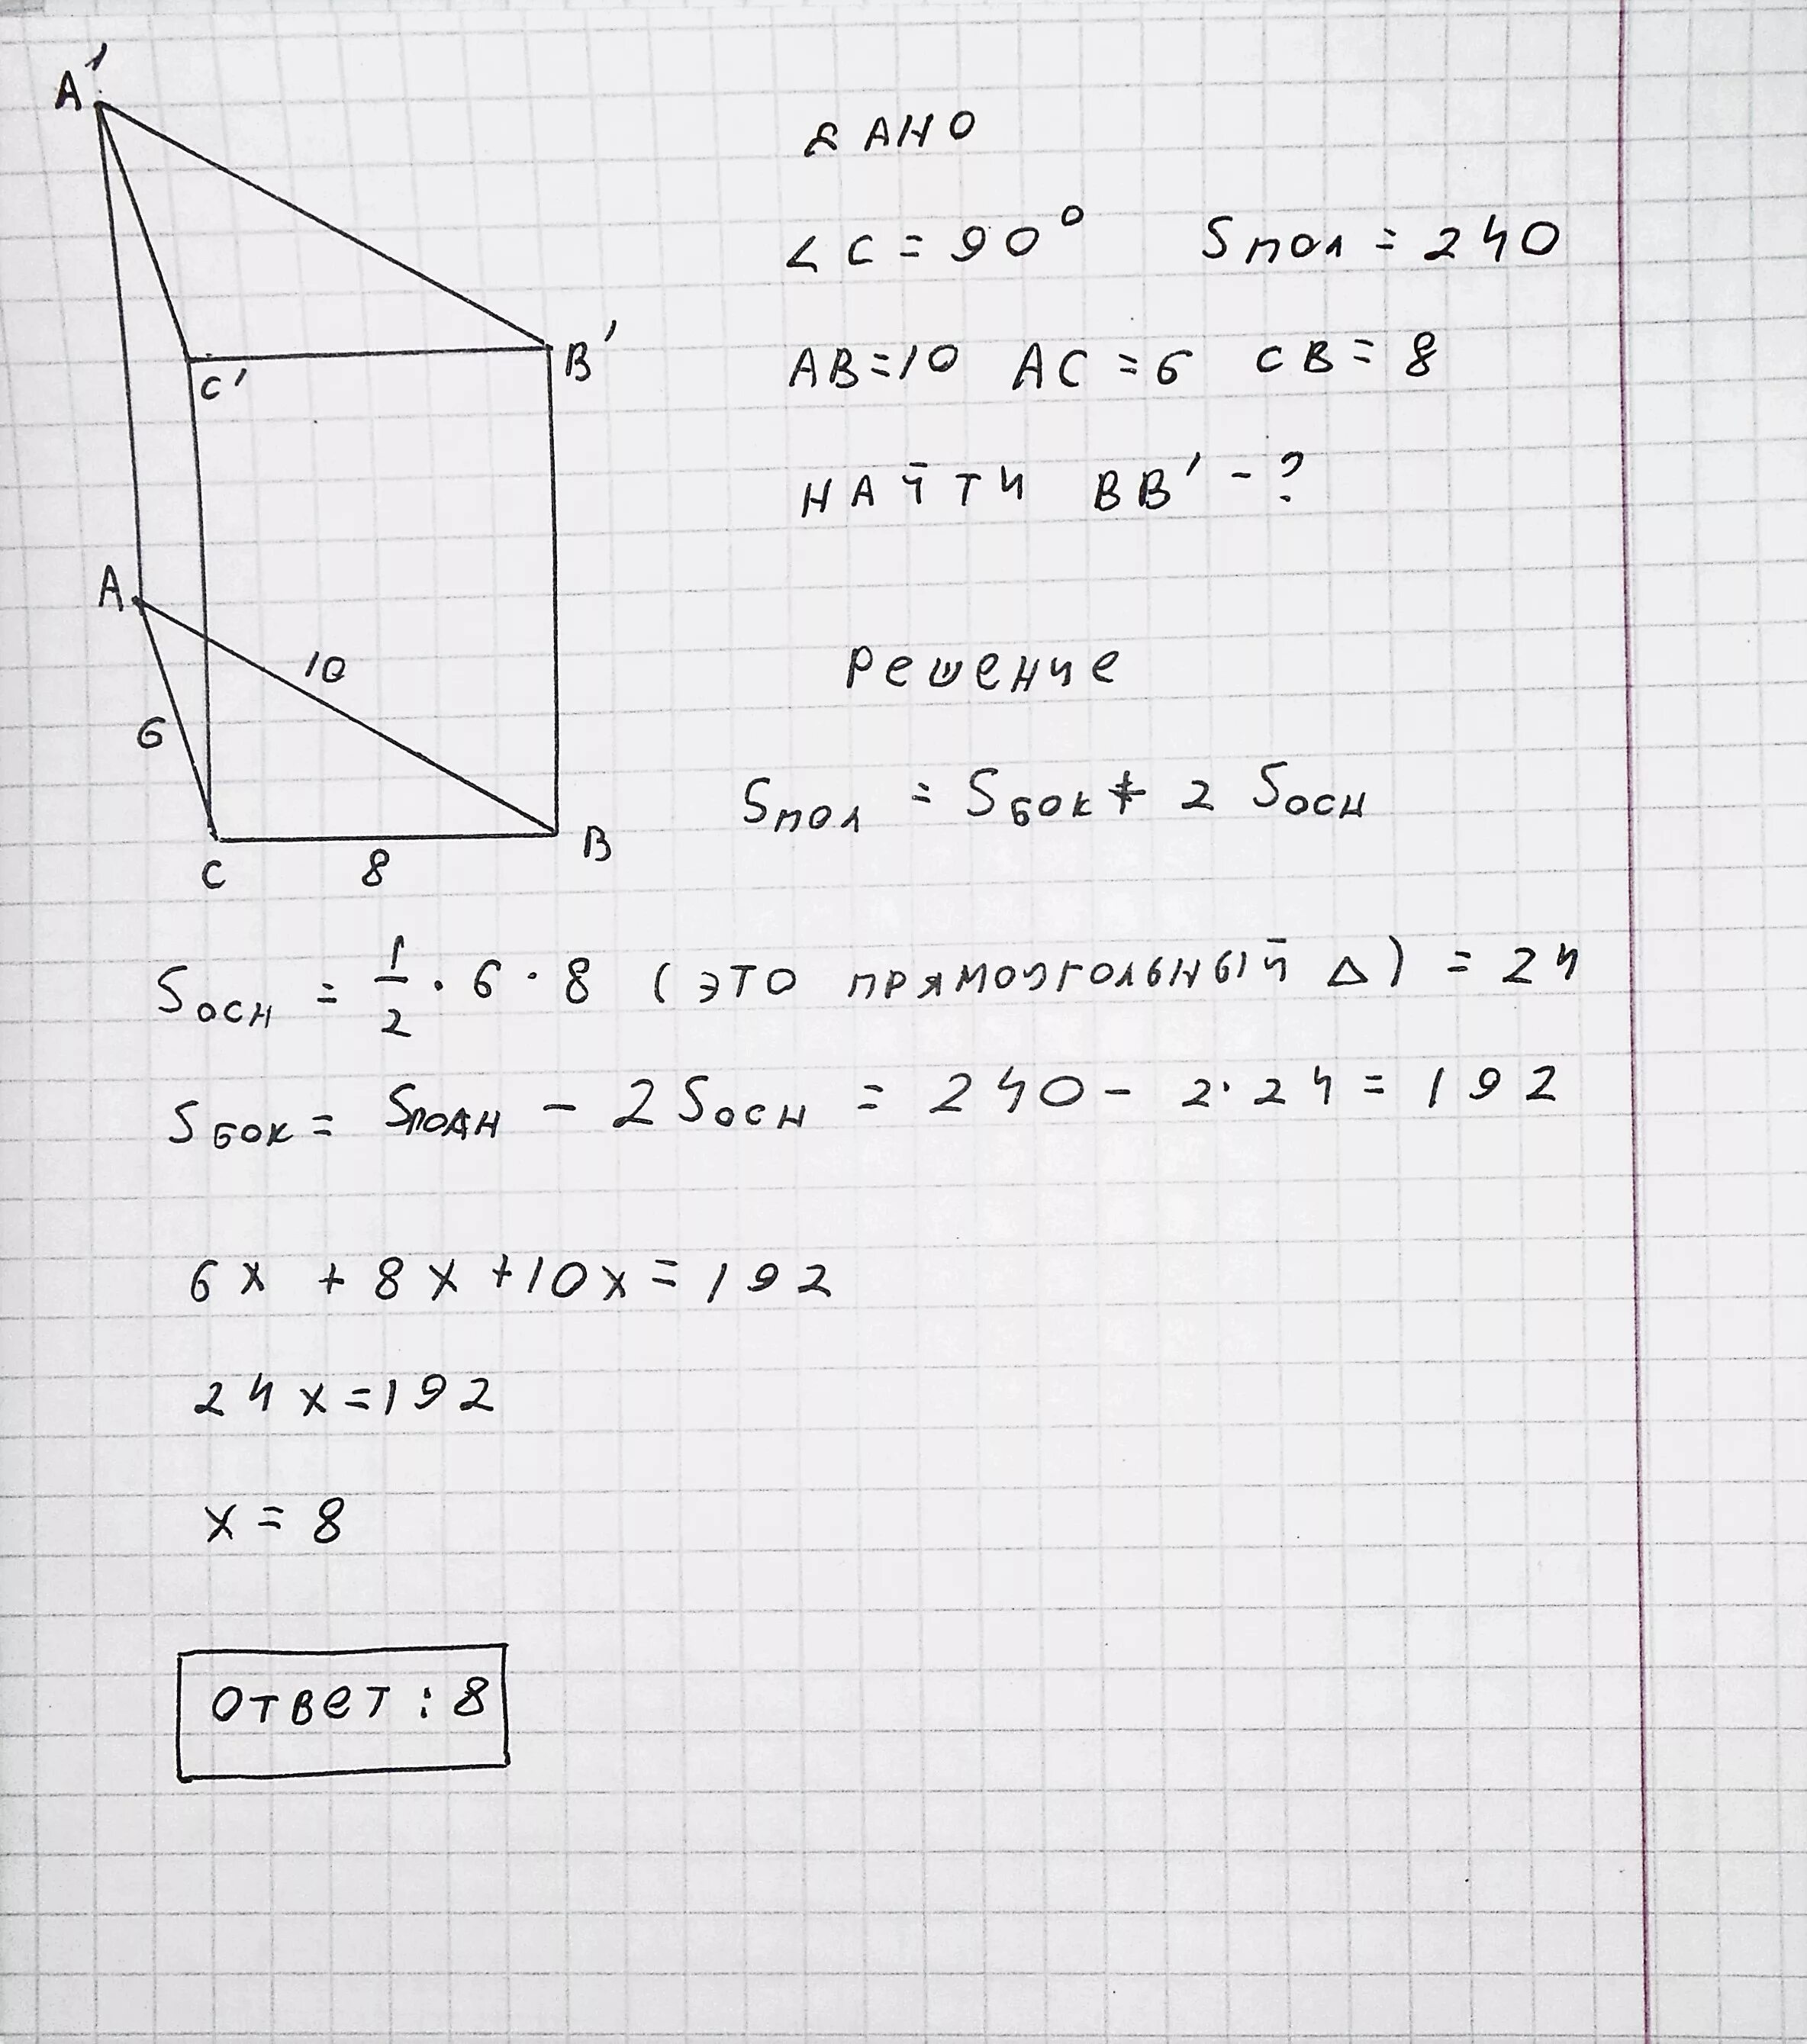 A'
ДАНО
∠C = 90°   Sпол = 240
C'
B'
AB=10   AC = 6   CB = 8
НАЙТИ   BB' - ?
A
10
6
Решение
Sпол = Sбок + 2 Sосн
C
8
B
Sосн = 1/2 · 6 · 8 (это прямоугольный Δ) = 24
Sбок = Sполн - 2Sосн = 240 - 2·24 = 192
6x + 8x + 10x = 192
24x = 192
x = 8
Ответ : 8